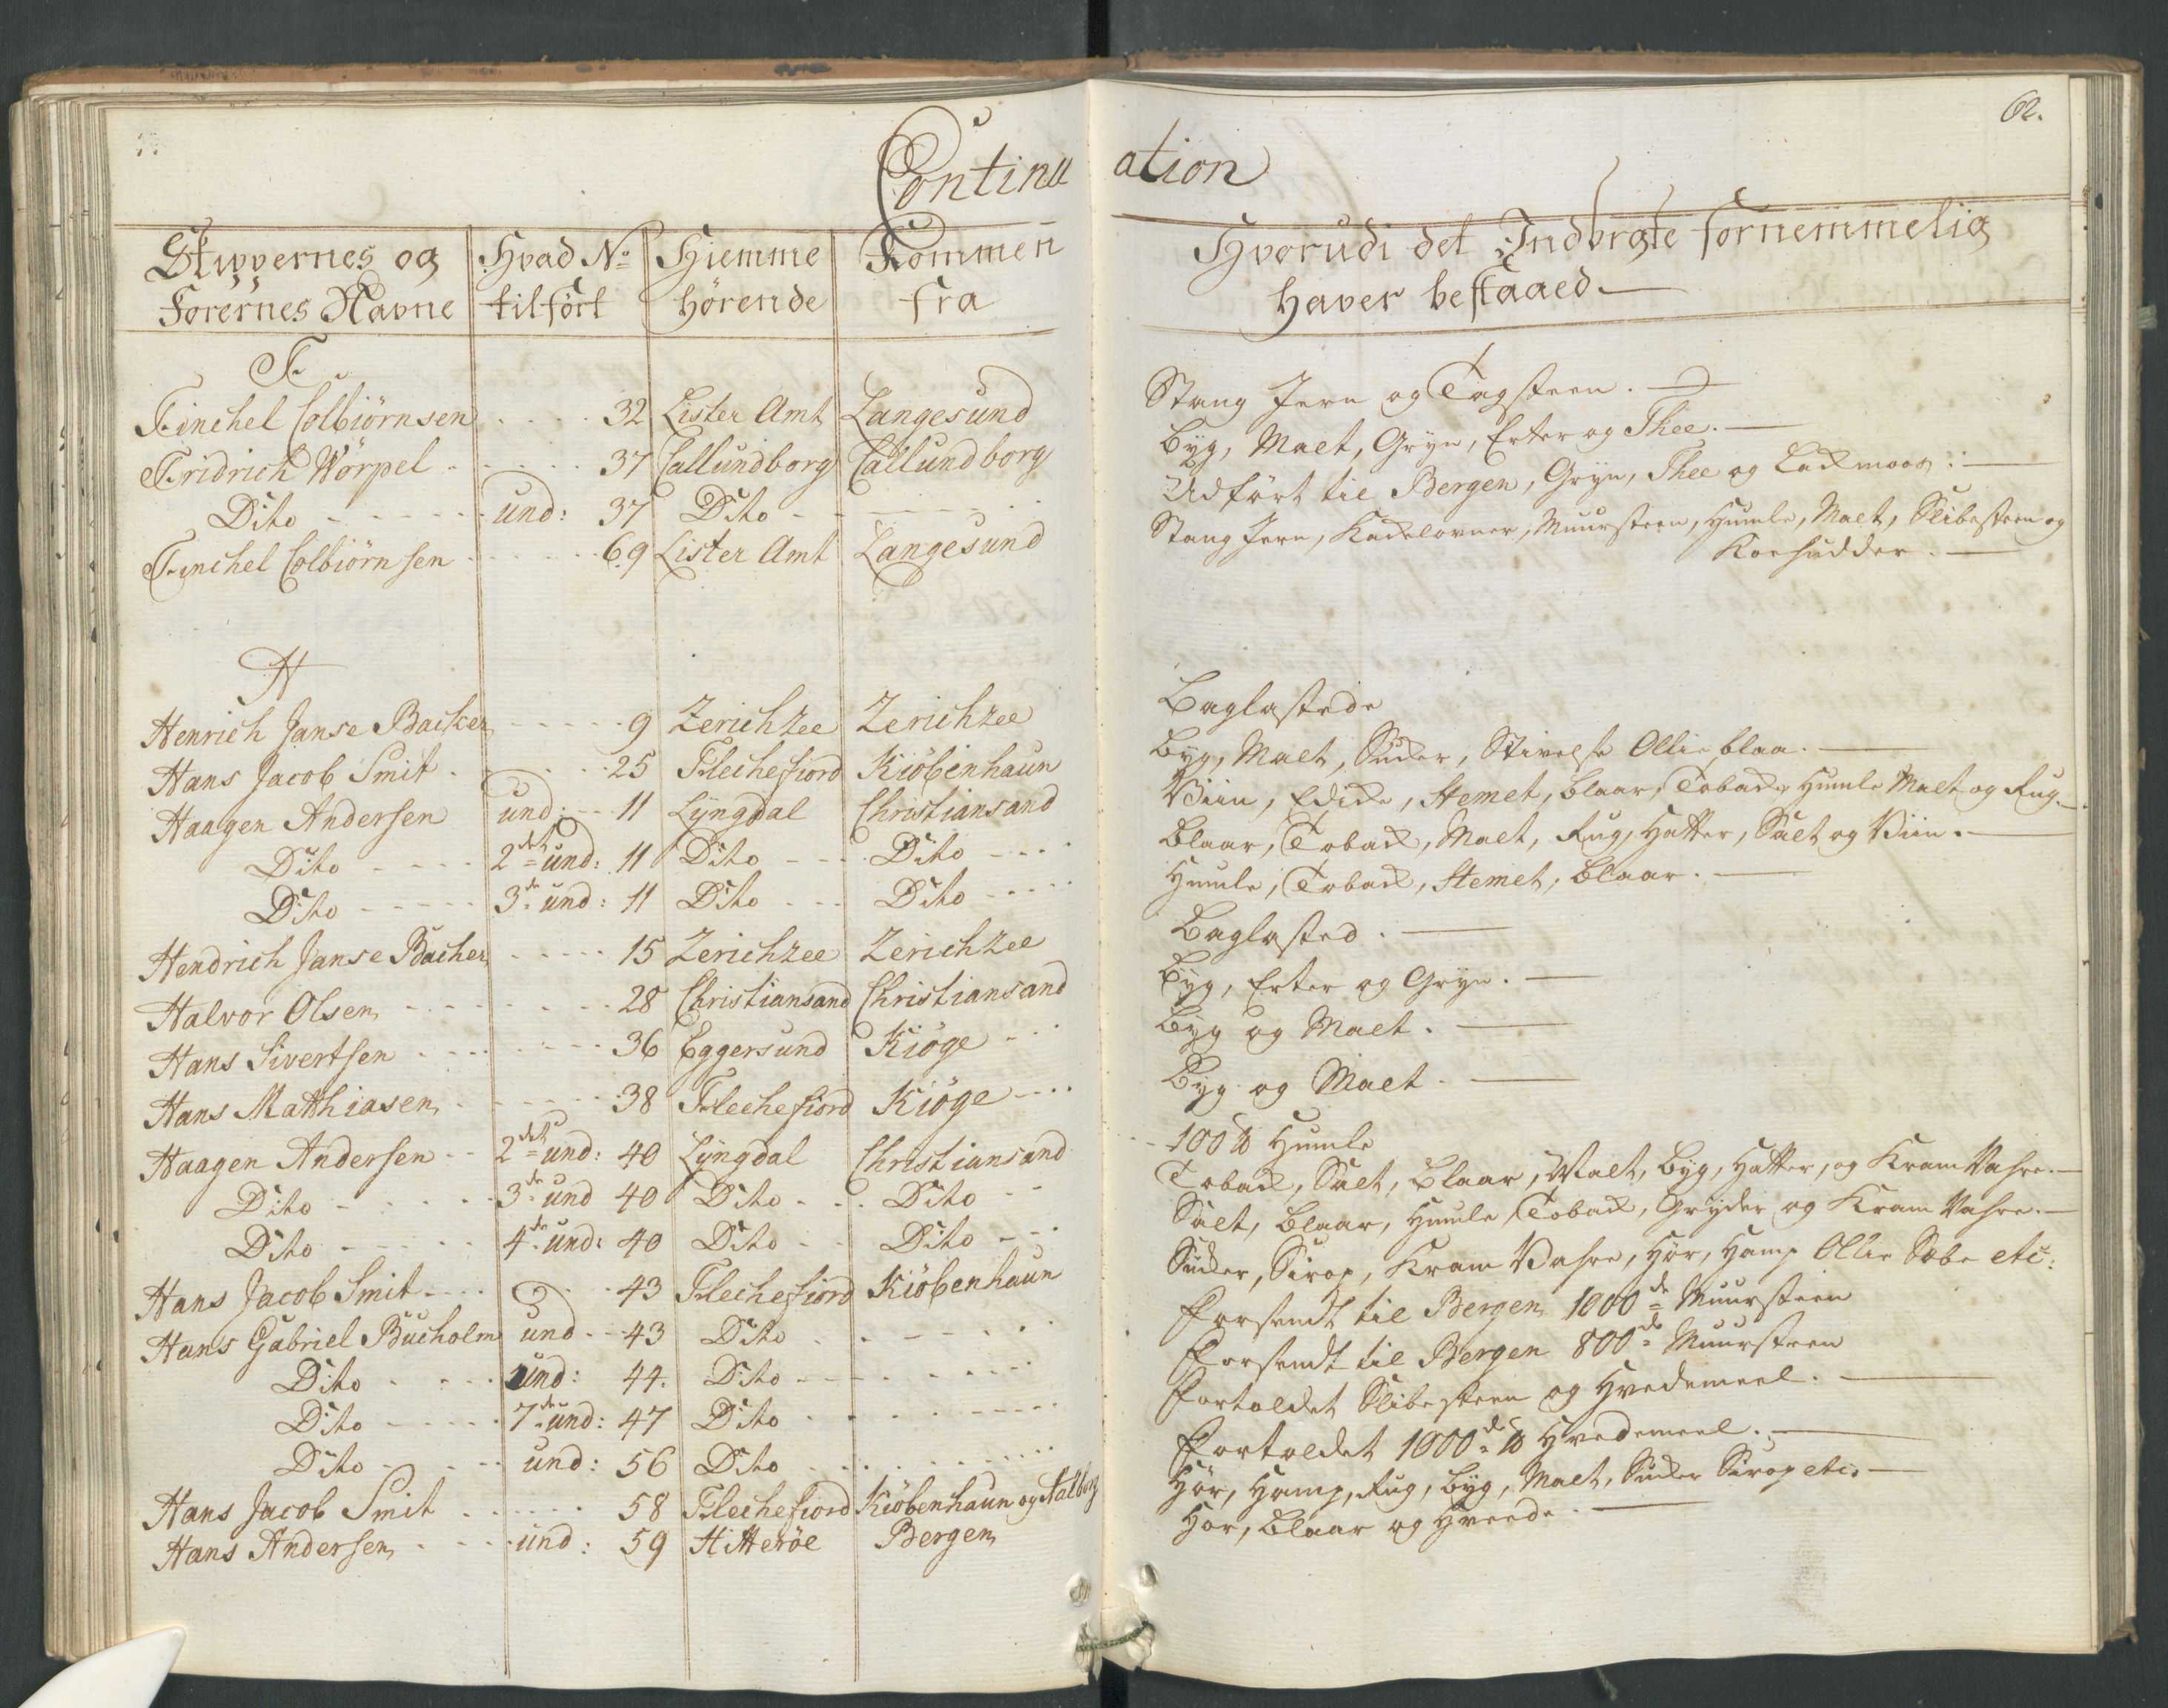 62.
Continuation
Skippernes og Hvad No Hiemme Kommen Hvorudi det Indbragte fornemmelig
Førernes Navne tilført hørende fra haver bestaaed.
F.
Finchel Colbiörnsen 32 Lister Amt Langesund Stang Jern og Tagsteen.
Fridrich Wörpel 37 Callundborg Callundborg Byg, Malt, Gryn, Erter og Thee.
Dito und: 37 Dito Udfört til Bergen, Gryn, Thee og Lackmoos:
Finchel Colbiörnsen 69 Lister Amt Langesund Stang Jern, Kackelovner, Muursteen, Humle, Malt, Slibesteen og
Koehudder.
H
Henrich Janse Backer 9 Zerichzee Zerichzee Baglastede
Hans Jacob Smit 25 Flechefiord Kiöbenhaun Byg, Malt, Sucker, Stivelse Ollie blaa.
Haagen Andersen und: 11 Lyngdal Christiansand Viin, Edicke, Stemet, blaar, Toback, Humle Malt og Rug
Dito 2det und: 11 Dito Dito Blaar, Toback, Malt, Rug, Hatter, Salt og Viin.
Dito 3de und: 11 Dito Dito Humle, Toback, Stemet, Blaar.
Hendrich Janse Bacher 15 Zerichzee Zerichzee Baglasted.
Halvor Olsen 28 Christiansand Christiansand Byg, Erter og Gryn.
Hans Sivertsen 36 Eggersund Kiöge Byg og Malt.
Hans Matthiasen 38 Flechefiord Kiöge Byg og Malt.
Haagen Andersen 2det und: 40 Lyngdal Christiansand 100 ℔ Humle
Dito 3de und 40 Dito Dito Toback, Salt, Blaar, Malt, Byg, Hatter, og Kram Vahre.
Dito 4de und: 40 Dito Dito Salt, Blaar, Humle, Toback, Gryder og Kram Vahre.
Hans Jacob Smit 43 Flechefiord Kiöbenhaun Sucker, Sirop, Kram Vahre, Hör, Hamp Ollie Sæbe etc:
Hans Gabriel Bücholm und 43 Dito Forsendt til Bergen 1000de Muursteen
Dito und: 44. Dito Forsendt til Bergen 800de Muursteen
Dito 7de und: 47 Dito Fortoldet Slibesteen og Hvedemeel.
Dito und: 56 Dito Fortoldet 1000de ℔ Hvedemeel.
Hans Jacob Smit 58 Flechefiord Kiöbenhaun og Aalborg Hör, Hamp, Rug, Byg, Malt, Sucker Sirop etc.
Hans Andersen und: 59 Hitteröe Bergen Hör, Blaar og Hveede.